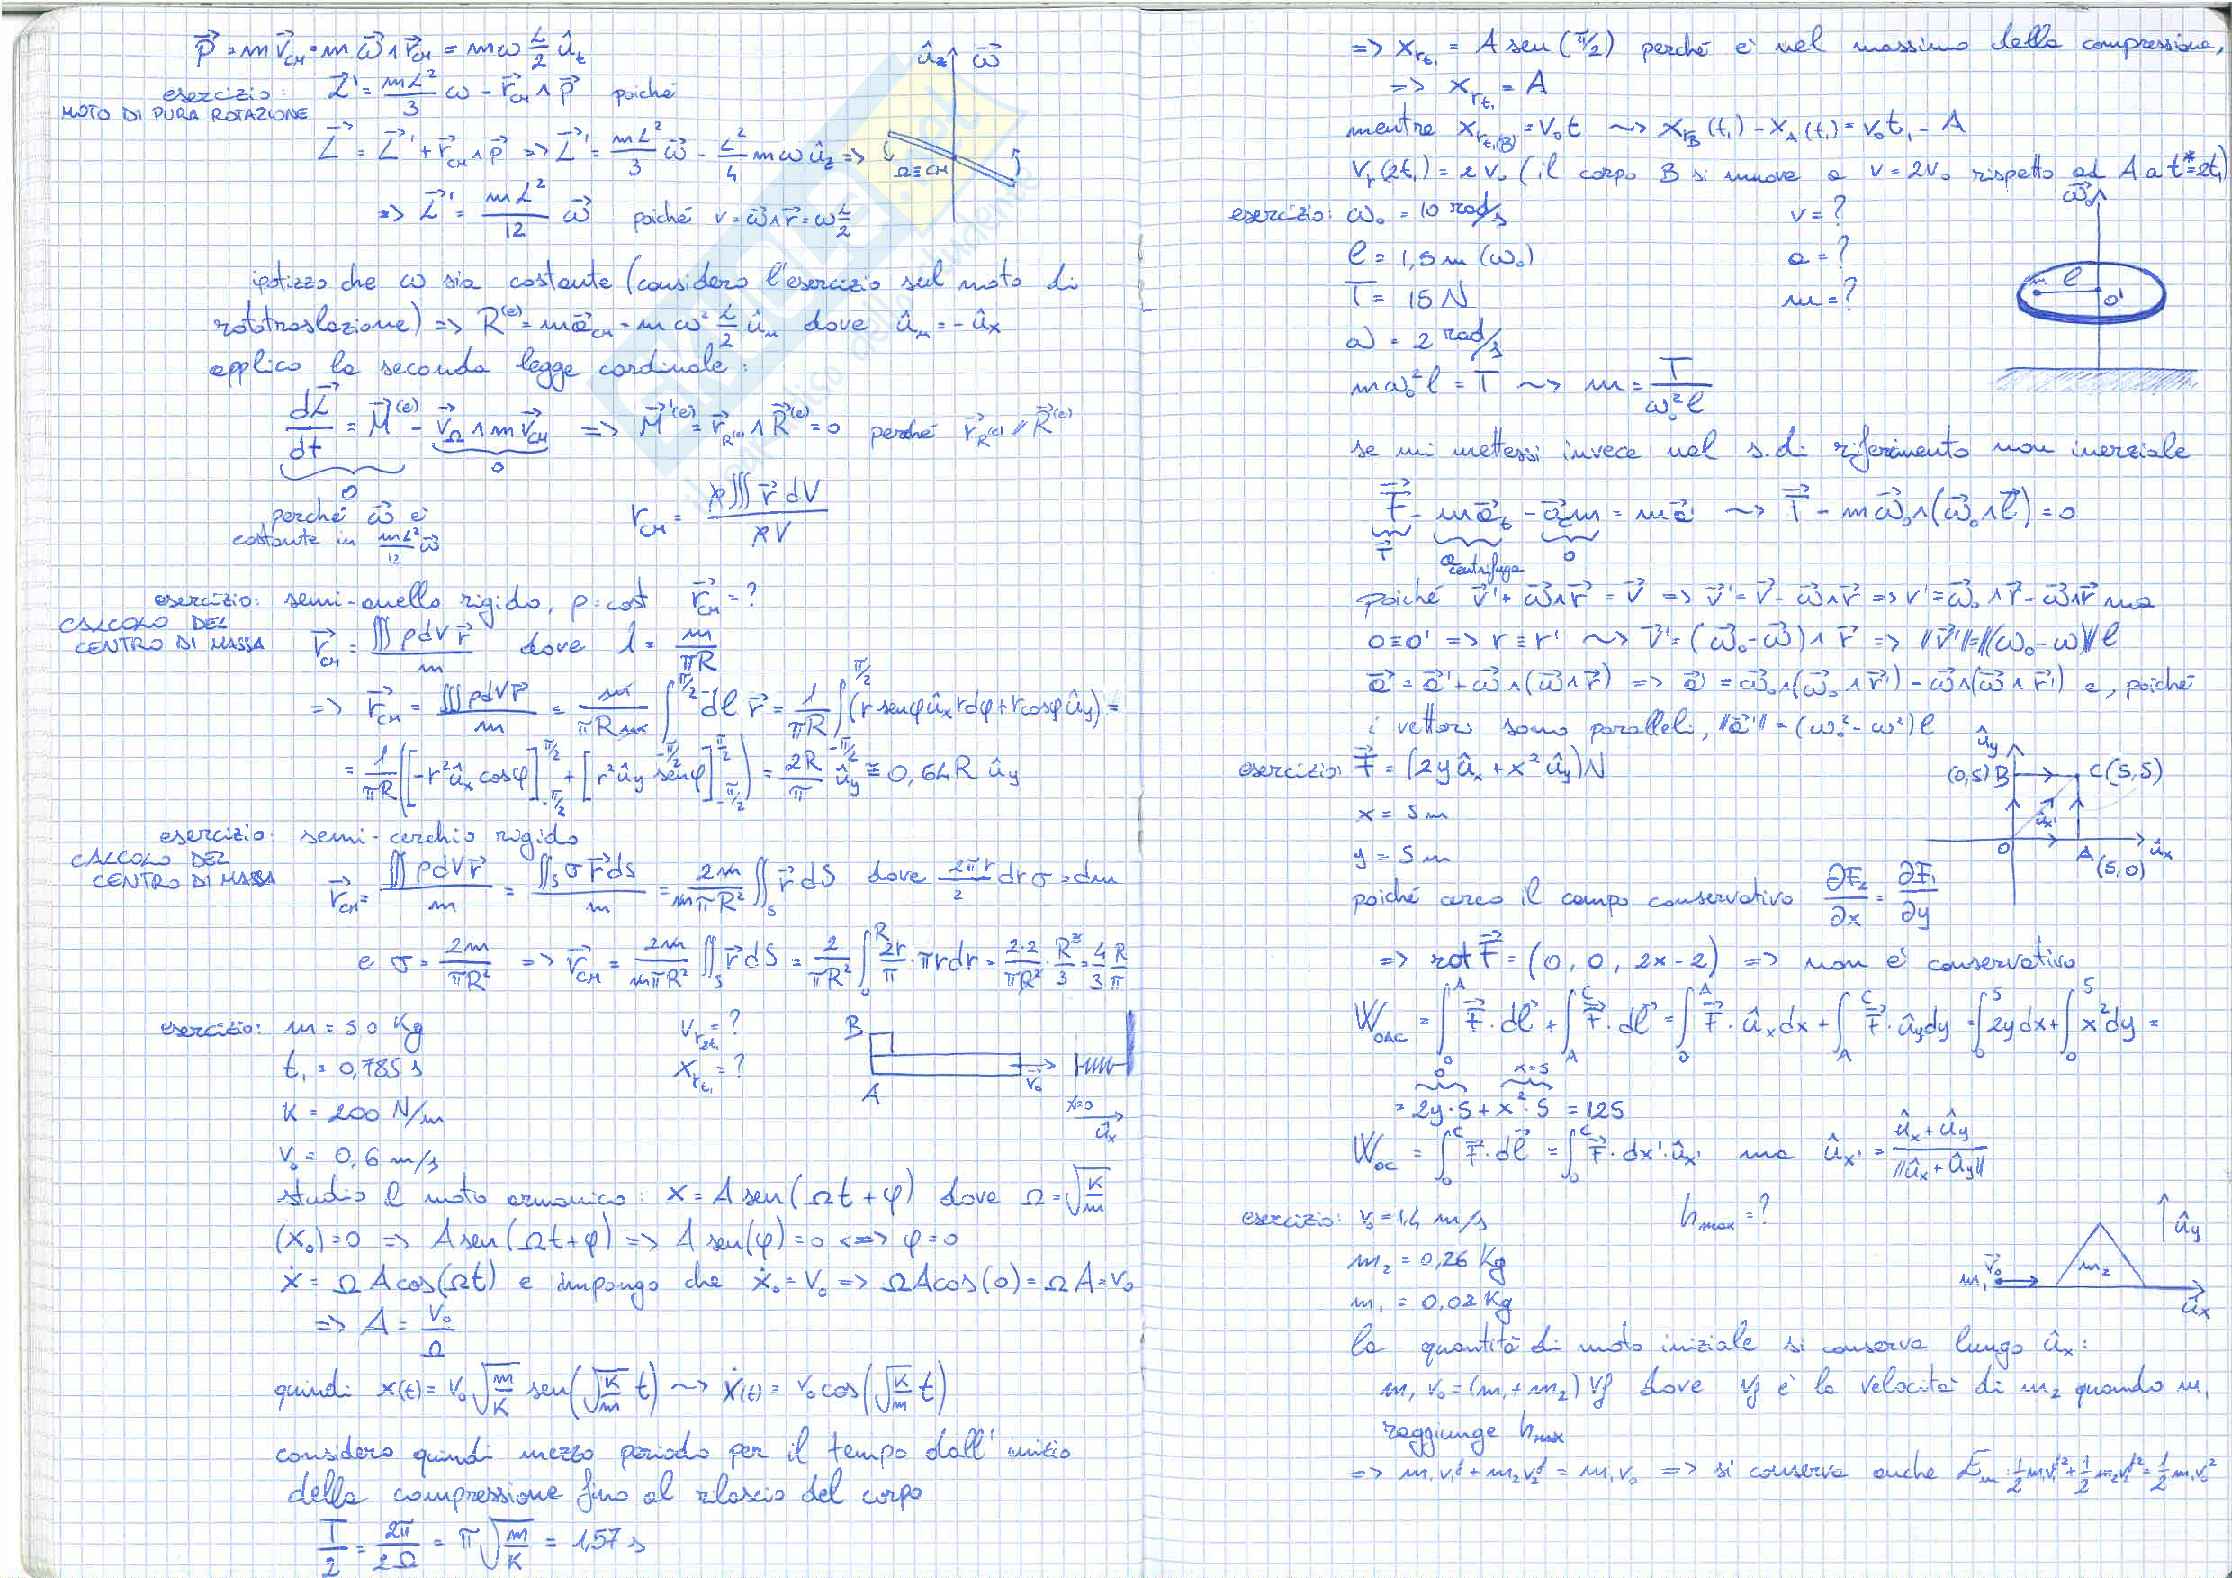 p⃗ = m v⃗_CM = m ω⃗ ∧ r⃗_CM = mω L/2 û_t
esercizio: L⃗' = mL²/3 ω - r⃗_CM ∧ p⃗ poiché
MOTO DI PURA ROTAZIONE
L⃗ = L⃗' + r⃗_CM ∧ p⃗ => L⃗' = mL²/3 ω⃗ - L²/4 mω û_z =>
=> L⃗' = mL²/12 ω⃗ poiché v = ω⃗ ∧ r⃗ = ω L/2
û_z ω⃗
Ω ≡ CM
ipotizzo che ω sia costante (considero l'esercizio sul moto di
rototraslazione) => R^(e) = m a⃗_CM = m ω² L/2 û_n dove û_n = - û_x
applico la seconda legge cardinale:
dL⃗/dt = M⃗^(e) - v⃗_Ω ∧ m v⃗_CM => M⃗'^(e) = r⃗_R^(e) ∧ R⃗^(e) = 0 perché r⃗_R^(e) // R⃗^(e)
0
0
perché ω⃗ è
costante in mL²/12 ω⃗
r_CM = ρ∭ r⃗ dV / ρV
esercizio: semi-anello rigido, ρ: cost r⃗_CM = ?
CALCOLO DEL
CENTRO DI MASSA
r⃗_CM = ∭ρdV r⃗ / m dove λ = m/πR
=> r⃗_CM = ∭ρdV r⃗ / m = m/πRm ∫^π/2 dl r⃗ = 1/πR ∫_-π/2^π/2 (r senφ û_x r dφ + r cosφ û_y) =
= 1/πR ([-r² û_x cosφ]_-π/2^π/2 + [r² û_y senφ]_-π/2^π/2) = 2R/π û_y ≅ 0,64R û_y
esercizio: semi-cerchio rigido
CALCOLO DEL
CENTRO DI MASSA
r⃗_CM = ∭ρdV r⃗ / m = ∬_S σ r⃗ dS / m = 2m/mπR² ∬_S r⃗ dS dove 2πr/2 dr σ = dm
e σ = 2m/πR² => r⃗_CM = 2m/mπR² ∬_S r⃗ dS = 2/πR² ∫_0^R 2r/π · πr dr = 2·2/πR² · R³/3 = 4/3 R/π
esercizio: m = 50 Kg v_r2t₁ = ?
t₁ = 0,785 s x_rt₁ = ?
K = 200 N/m
v₀ = 0,6 m/s
B
A
v⃗₀
x=0
û_x
studio il moto armonico: x = A sen(Ωt + φ) dove Ω = √(K/m)
(x₀) = 0 => A sen(Ωt + φ) => A sen(φ) = 0 <=> φ = 0
ẋ = ΩA cos(Ωt) e impongo che ẋ₀ = V₀ => ΩA cos(0) = ΩA = v₀
=> A = V₀/Ω
quindi x(t) = v₀ √(m/K) sen(√(K/m) t) ~> ẋ(t) = v₀ cos(√(K/m) t)
considero quindi mezzo periodo per il tempo dall'inizio
della compressione fino al rilascio del corpo
T/2 = 2π/2Ω = π √(m/K) = 1,57 s
=> x_rt₁ = A sen(π/2) perché è nel massimo della compressione,
=> x_rt₁ = A
mentre x_rt₁(B) = v₀t ~> x_rB(t₁) - x_A(t₁) = v₀t₁ - A
V_r(2t₁) = 2v₀ (il corpo B si muove a v = 2v₀ rispetto ad A a t* = 2t₁)
esercizio: ω₀ = 10 rad/s v = ?
l = 1,5 m (ω₀) a = ?
T = 15 N m = ?
ω = 2 rad/s
mω₀²l = T ~> m = T/ω₀²l
ω⃗₀
m l O'
se mi mettessi invece nel s.di riferimento non inerziale
F⃗ - m a⃗_t - a⃗_c m = m a⃗' ~> T⃗ - m ω⃗₀ ∧ (ω⃗₀ ∧ l⃗) = 0
T⃗ a centrifuga 0
poiché v⃗' + ω⃗ ∧ r⃗ = v⃗ => v⃗' = v⃗ - ω⃗ ∧ r⃗ => v' = ω⃗₀ ∧ r⃗ - ω⃗ ∧ r⃗ ma
O ≡ O' => r ≡ r' ~> v⃗' = (ω⃗₀ - ω⃗) ∧ r⃗ => ‖v⃗'‖ = ‖(ω₀ - ω)‖ l
a⃗ = a⃗' + ω⃗ ∧ (ω⃗ ∧ r⃗) => a⃗' = ω⃗₀ ∧ (ω⃗₀ ∧ r⃗') - ω⃗ ∧ (ω⃗ ∧ r⃗') e, poiché
i vettori sono paralleli, ‖a⃗'‖ = (ω₀² - ω²) l
esercizio: F⃗ = (2y û_x + x² û_y) N
x = 5 m
y = 5 m
û_y
(0,5) B C (5,5)
û_x'
O A û_x
(5,0)
poiché cerco il campo conservativo ∂F₂/∂x = ∂F₁/∂y
=> rot F⃗ = (0, 0, 2x-2) => non è conservativo
W_OAC = ∫_0^A F⃗ · dl⃗ + ∫_A^C F⃗ · dl⃗ = ∫_0^A F⃗ · û_x dx + ∫_A^C F⃗ · û_y dy = ∫_0^5 2y dx + ∫_0^5 x² dy =
0 x=5
= 2y·5 + x²·5 = 125
W_OC = ∫_0^C F⃗ · dl⃗ = ∫_0^C F⃗ · dx' · û_x' ma û_x' = û_x + û_y / ‖û_x + û_y‖
esercizio: v₀ = 1,4 m/s h_max = ?
m₂ = 0,26 Kg
m₁ = 0,02 Kg
û_y
m₁ v⃗₀ m₂
û_x
la quantità di moto iniziale si conserva lungo û_x:
m₁v₀ = (m₁ + m₂) v_f dove v_f è la velocità di m₂ quando m₁
raggiunge h_max
=> m₁v₁^f + m₂v₂^f = m₁v₀ => si conserva anche E_m: ½m₁v₁^f² + ½m₂v₂^f² = ½m₁v₀²